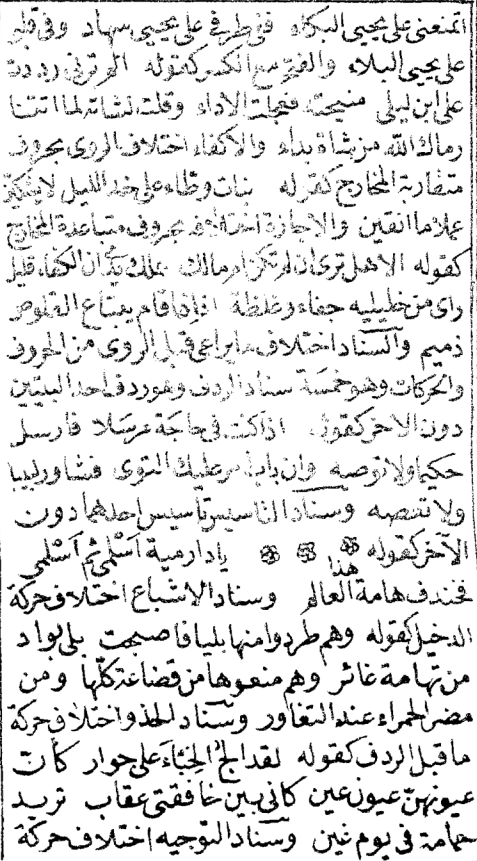 اتمنعني على يحيى البكاء ففي طرفي على يحيى سهاد وفي قلبي
على يحيى البلاء والفتح مع الكسر كقوله الم ترني رددت
على ابن ليلى منيحته فعجلت الاداء وقلت لشاته لما اتتنا
رماك الله من شاة بداء والاكفاء اختلاف الروي بحروف
متقاربة المخارج كقوله بنات وطاء على خد الليل لا يشتكين
عملا ما انقين والاجازة اختلافه بحروف متباعدة المخارج
كقوله الا هل ترى ان لم تكن ام مالك بملك يدي ان الكفاء قليل
راى من خليليه جفاء وغلظة اذا قام يبتاع القلوص
ذميم والسناد اختلاف ما يراعى قبل الروي من الحروف
والحركات وهو خمسة سناد الردف وهو ردف احد البيتين
دون الاخر كقوله اذا كنت في حاجة مرسلا فارسل
حكيما ولا توصه وان باب امر عليك التوى فشاور لبيبا
ولا تعصه وسناد التاسيس تاسيس احدهما دون
الآخر كقوله يا دار مية اسلمي ثم اسلمي
فخندف هامة هذا العالم وسناد الاشباع اختلاف حركة
الدخيل كقوله وهم طردوا منها بليا فاصبحت بلي بواد
من تهامة غائر وهم منعوها من قضاعة كلها ومن
مضر الحمراء عند التغاور وسناد الحذو اختلاف حركة
ما قبل الردف كقوله لقد الج الخباء على جوار كان
عيونهن عيون عين كاني بين خافقتي عقاب تريد
حمامة في يوم غين وسناد التوجيه اختلاف حركة